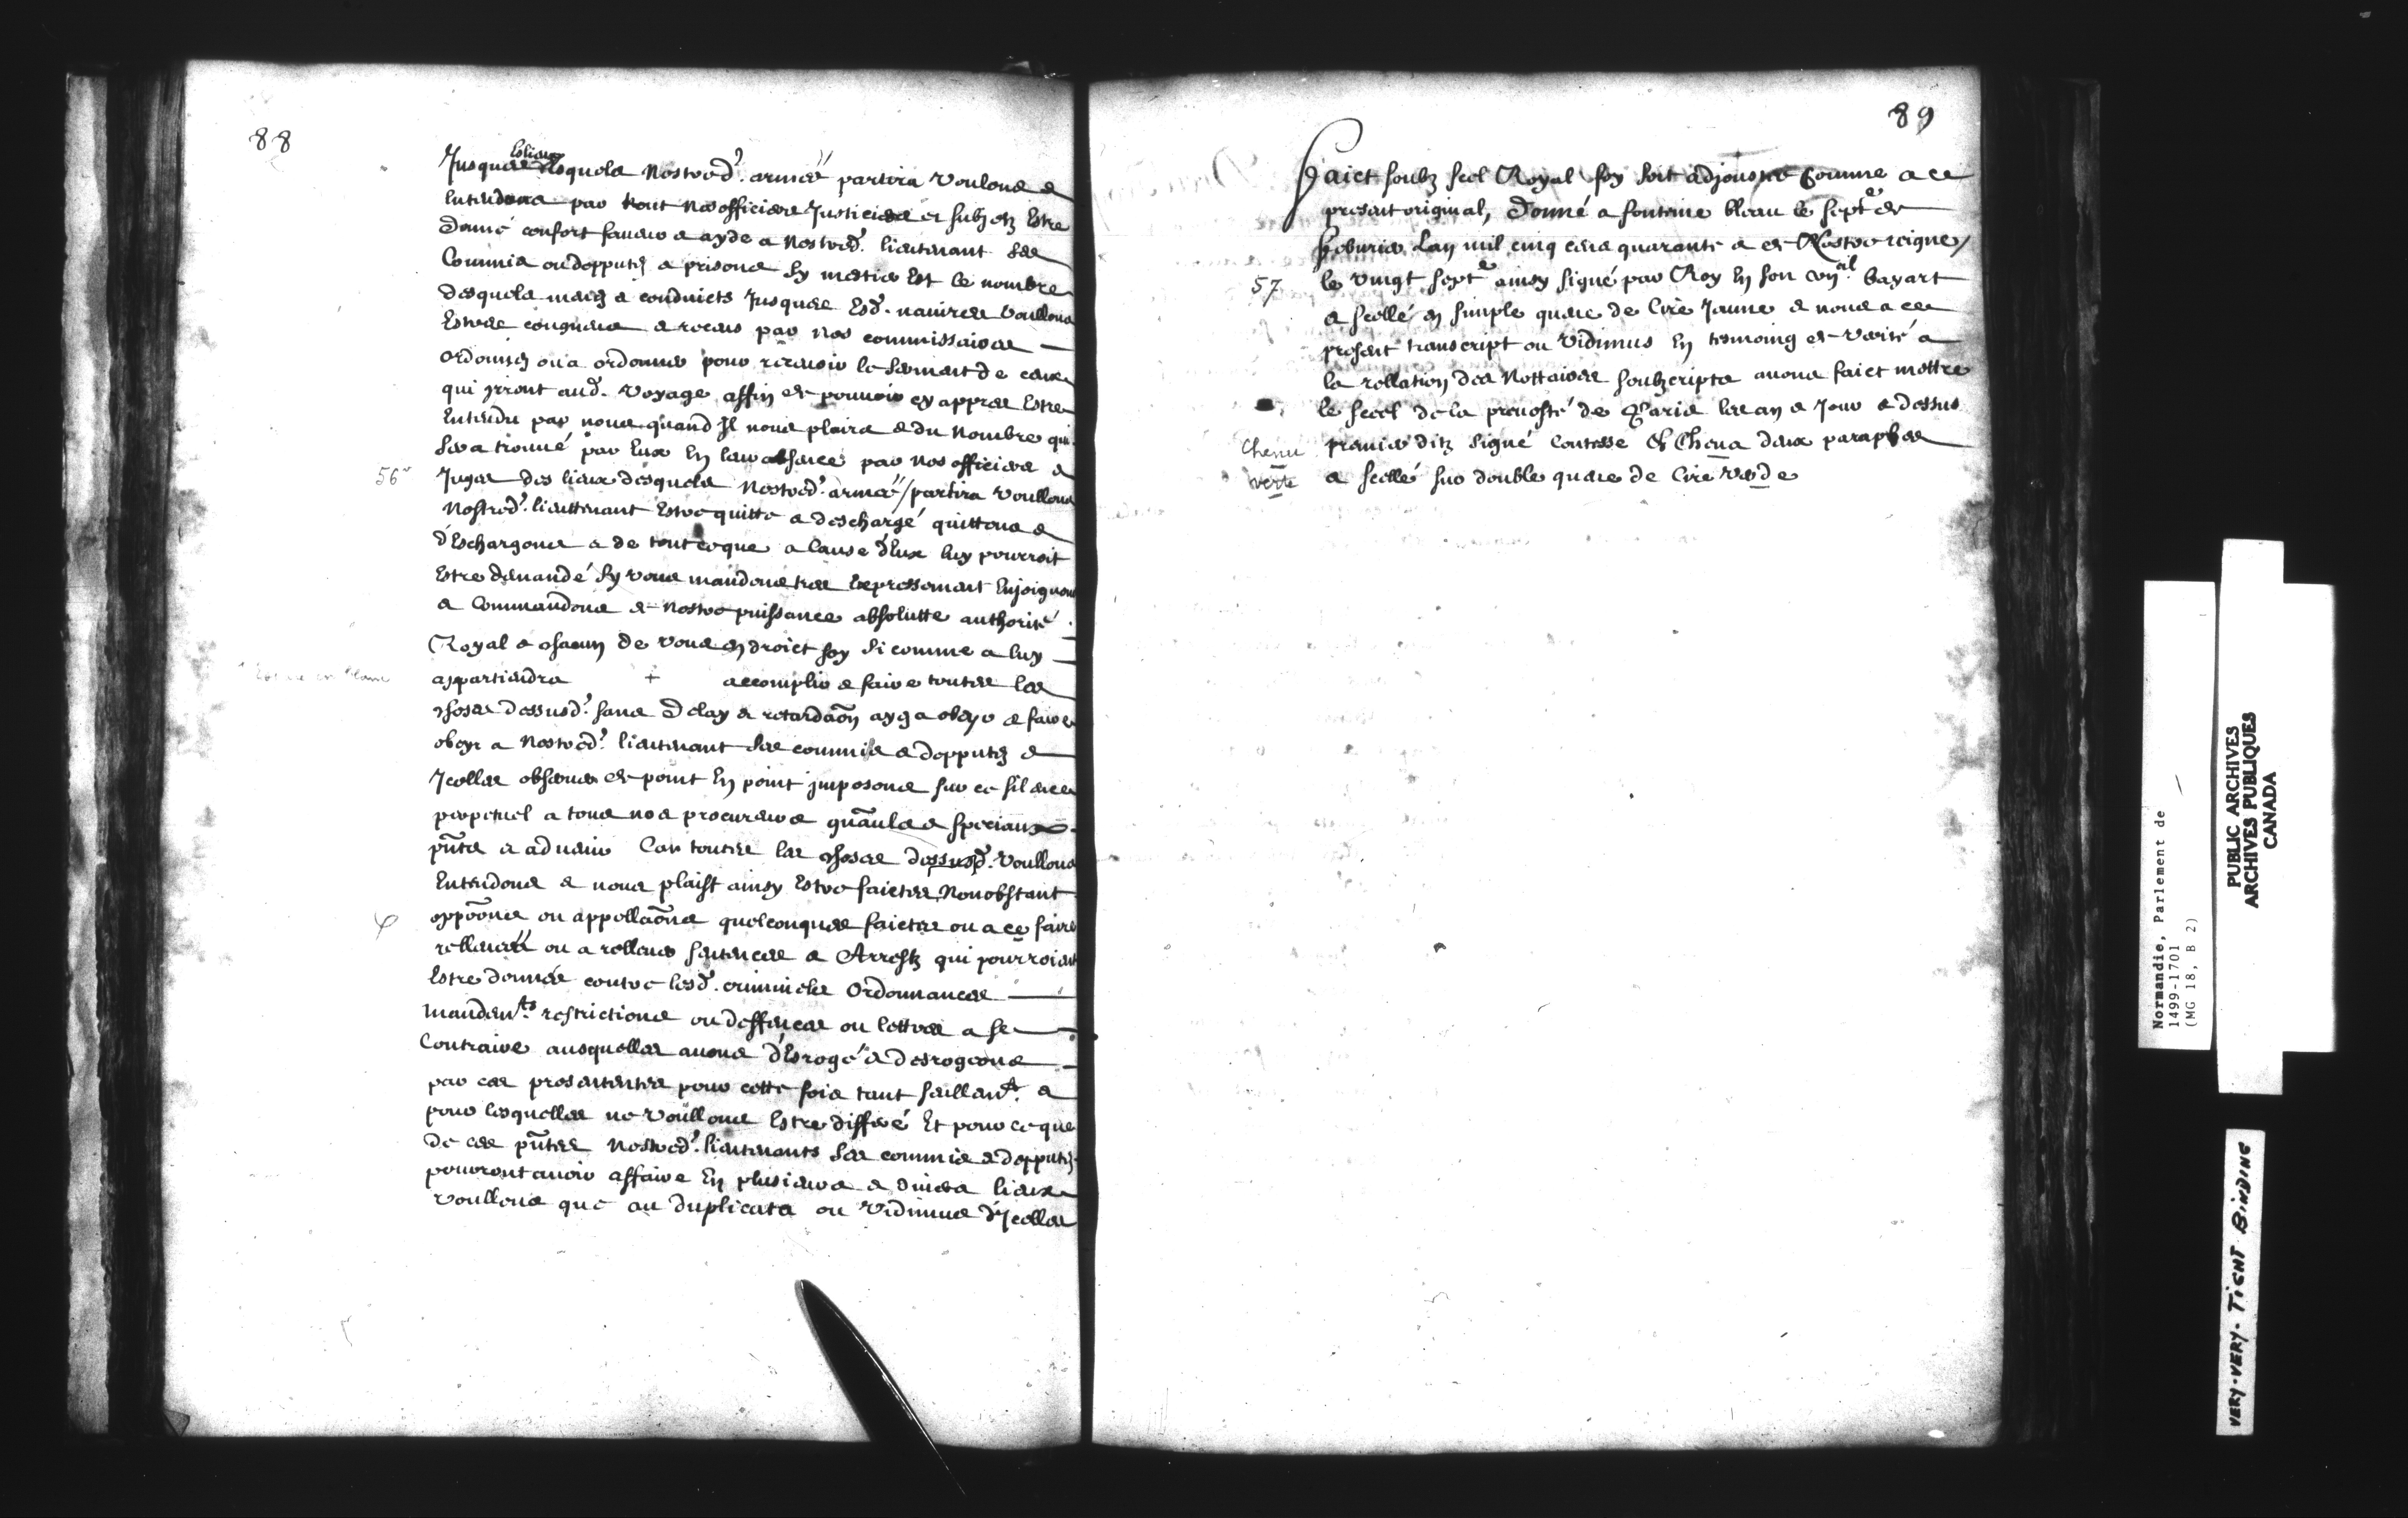 88
Jusques es lieux desquels nostred. armée partira voulons &
entendons par tout nos officiers Justiciers et subjetz Estre
donné confort faveur & ayde a nostred. lieutenant ses
Commis ou depputez & prisons sy mestier Est le nombre
desquels mariez & conduicts Jusques Esd. navires voullons
Estre & receus par nos commissaires
ordonnez ou a ordonner pour recevoir le serment de ceux
qui yrront aud. voyage affin de pouvoir cy appres Estre
Entendu par nous quand Il nous plaira & du nombre qui
sera trouvé par Eux En leur absence par nos officiers &
56
Juges des lieux desquels nostred. armée partira voullons
nostred. lieuttenant Estre quitte & deschargé quittons &
dEschargons & de tout ce que a Cause d'Eux luy pourroit
Estre demandé sy vous mandons tres Expressement Enjoignons
& Commandons de nostre puissance absolutte authorité
Royal & chacun de vous en droict soy si comme a luy
appartiendra + accomplir & faire touttes les
choses dessusd. sans delay & retardaon obeyr & faire
obeyr a nostred. lieutenant ses commis & depputez &
Jcelles observer de point En point jmposons sur ce silence
perpetuel a tous nos procureurs gnaulx & speciaux
pntes & advenir Car touttes les choses dessusd. voullons
Entendons & nous plaist ainsy Estre faictes Nonobstant
oppoons ou appellaons quelconques faictes ou a ce faire
rellevées ou a rellever sentences & Arrestz qui pourroient
Estre donnés contre lesd. criminels Ordonnances
mandem.ts restrictions ou deffences ou lettres a se
Contraire ausquelles avons dEsrogé & desrogeons
par ces presentes pour cette fois tant seullem.t &
pour lesquelles ne voullons Estre differé Et pour ce que
de ces pntes nostred. lieutenants ses commis & depputez
pourront avoir affaire En plusieurs & divers lieux
voullons que au duplicata ou vidimus d'Jcelles
89
Faict soubz scel Royal foy soit adjoustée comme a ce
present original, Donné a fontaine bleau le sept.e de
febvrier Lan mil cinq cens quarante & de Nostre reigne
57
le vingt sept.e ainsy signé par Roy En son con.ail bayart
& scellé en simple queue de Cire Jaune & nous a ce
present transcript ou vidimus En tesmoing de verité a
la rellation des Nottaires soubzcripts avons faict mettre
le scel de la prevosté de Paris les an & Jour & dessus
Chenu
premier ditz signé Contesse Et Chenu deux paraphes
verte
& scellé sur double queue de Cire verde
Normandie, Parlement de
1499-1701
(MG 18, B 2)
PUBLIC ARCHIVES
ARCHIVES PUBLIQUES
CANADA
VERY-VERY-TIGHT BINDING